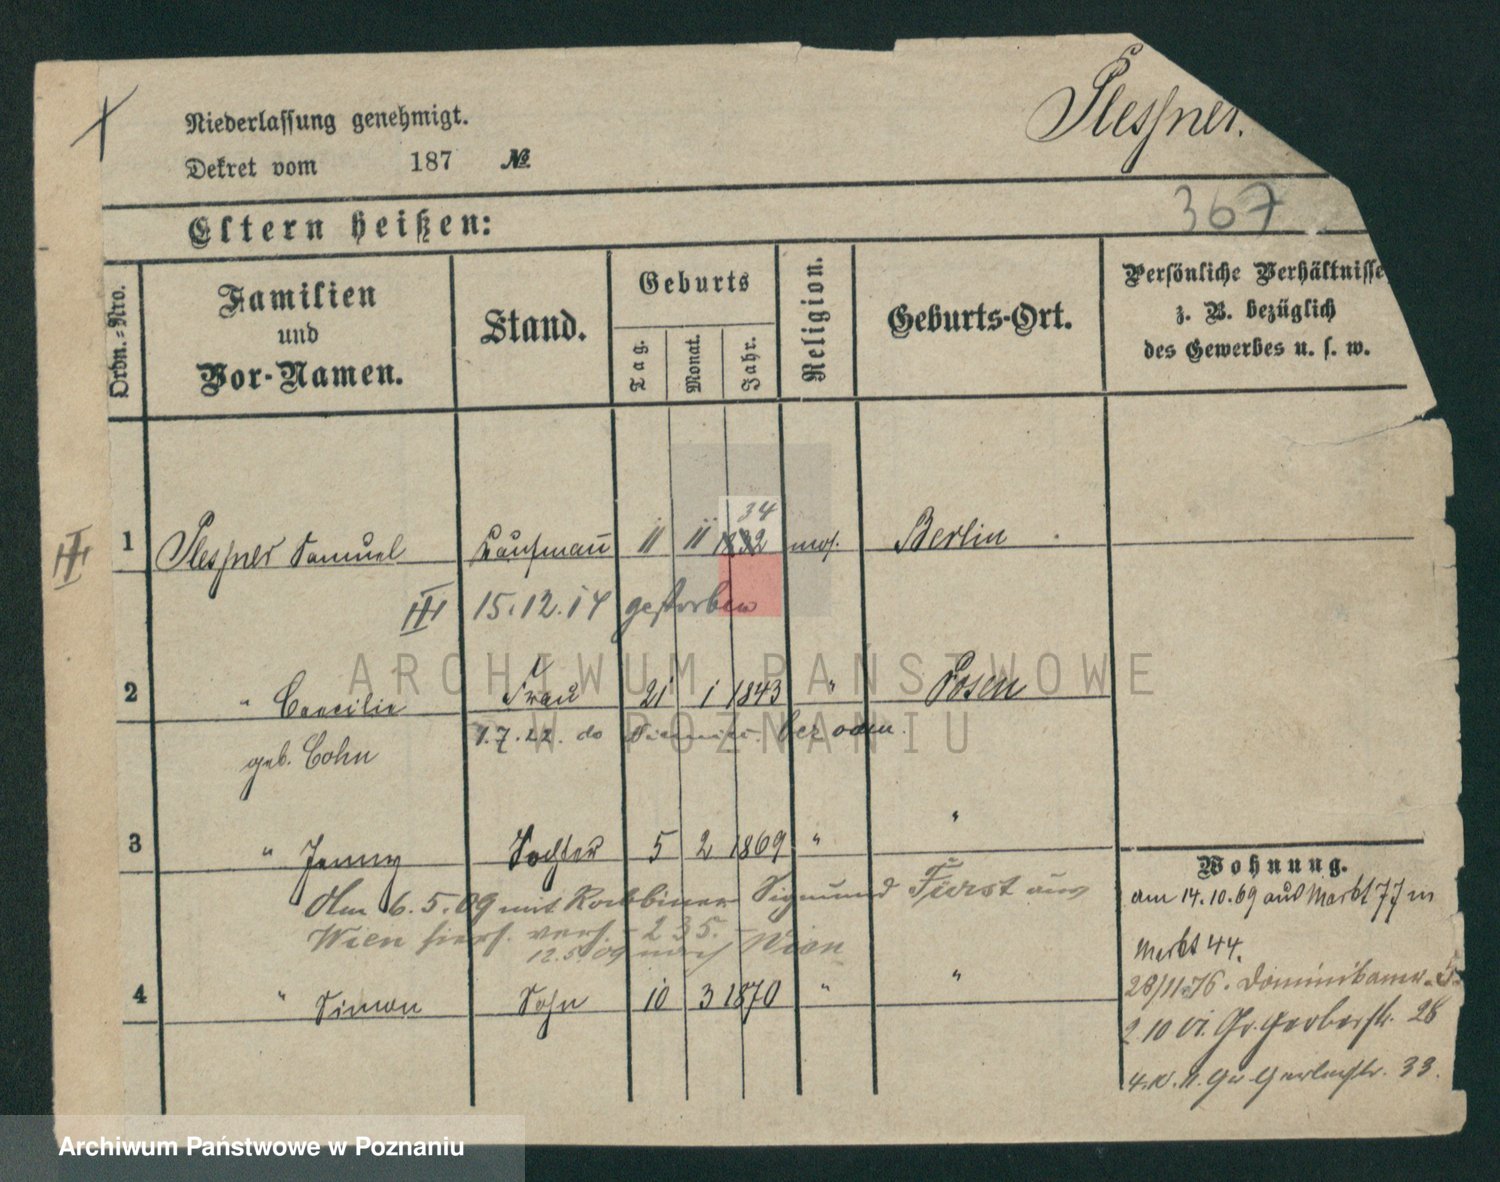 Niederlassung genehmigt.
Plessner.
Dekret vom 187 №
367
Eltern heißen:
Ordn.-Nro.
Familien
und
Vor-Namen.
Stand.
Geburts
Tag.
Monat.
Jahr.
Religion.
Geburts-Ort.
Persönliche Verhältnisse
z. B. bezüglich
des Gewerbes u. s. w.
34
III 1 Plessner Samuel Kaufmann 11 11 1832 mos. Berlin
III 15.12.14 gestorben
2 " Caecilie Frau 21 1 1843 " Posen
geb. Cohn
1.7.22. do Niemiec. bez odm.
3 " Jenny Tochter 5 2 1869 " "
Am 6.5.09 mit Rabbiner Sigmund Fürst aus
Wien hiers. verh. - 235.
12.5.09 nach Wien
4 " Simon Sohn 10 3 1870 " "
Wohnung.
am 14.10.69 aus Markt 77 in
Markt 44.
28/11.76. Dominikaner.
2.10 Gr. Gerberstr. 28
Gr Gerberstr. 33.
ARCHIWUM PAŃSTWOWE
W POZNANIU
Archiwum Państwowe w Poznaniu